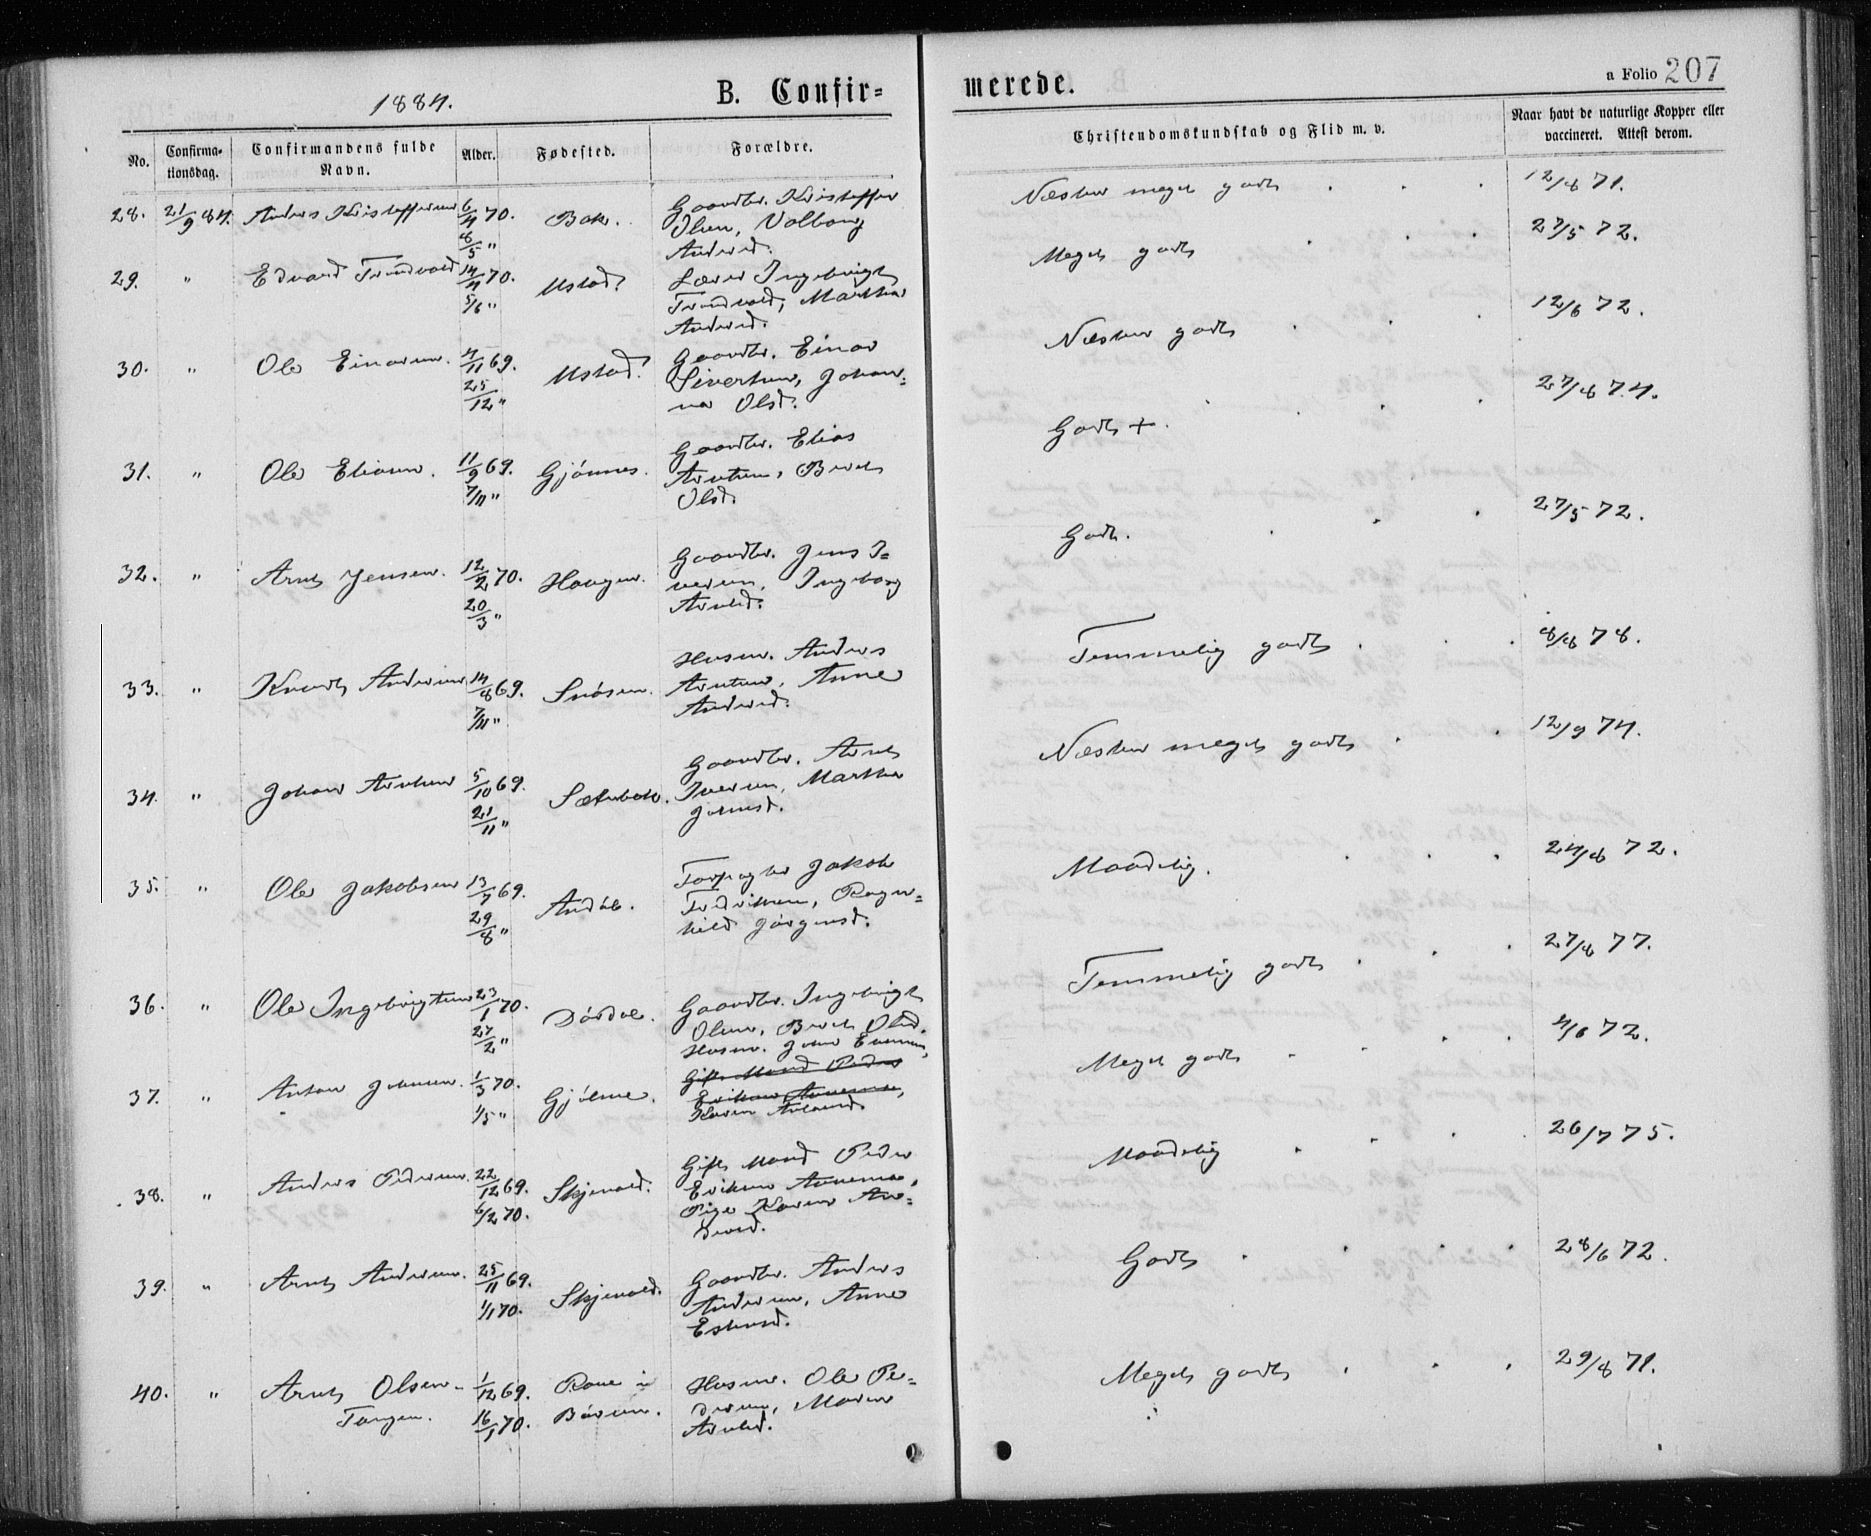 1884.
B. Confir=
merede.
a Folio 207
No.
Confirma-
tionsdag.
Confirmandens fulde
Navn.
Alder.
Fødested.
Forældre.
Christendomskundskab og Flid m. v.
Naar havt de naturlige Kopper eller
vaccineret. Attest derom.
28. 21/9 84. Anders Kristoffersen 6/4 70. Bak. Gaardbr. Kristoffer
8/5 " Olsen, Volborg
Andersd.
Næsten meget godt . . . 12/8 71.
29. " Edvard Trondvold 14/4 70. Ustad. Lærer Ingebrigt
5/6 " Trondvold, Martha
Andersd.
Meget godt . . . 27/5 72.
30. " Ole Einarsen. 4/11 69. Ustad. Gaardbr. Einar
25/12 " Sivertsen, Johan=
na Olsd.
Næsten godt . . . 12/6 72.
31. " Ole Eliasen. 11/9 69. Gjönnes. Gaardbr. Elias
7/11 " Arntsen, Beret
Olsd.
Godt + . . . 27/8 74.
32. " Arnt Jensen. 12/2 70. Haugen. Gaardbr. Jens I=
20/3 " versen, Ingeborg
Arntsd.
Godt. . . . 27/5 72.
33. " Knudt Andersen 14/8 69. Snösen. Husm. Anders
7/11 " Arntsen, Anne
Andersd.
Temmelig godt . . . 8/8 78.
34. " Johan Arntsen 5/10 69. Sæterbak. Gaardbr. Arnt
21/11 " Iversen, Martha
Johnsd.
Næsten meget godt . . 12/9 74.
35. " Ole Jakobsen 13/7 69. Andöl. Forpagter Jakob
29/8 " Fredriksen, Ragn=
hild Jörgensd.
Maadelig. . . . 24/8 72.
36. " Ole Ingebrigtsen 23/1 70. Dördal. Gaardbr. Ingebrigt
27/2 " Olsen, Beret Olsd.
Temmelig godt . . . 27/8 77.
37. " Anton Johnsen. 1/3 70. Gjölme. Husm. John
1/5 " Gift Mand Peder
Eriksen
Karen
Meget godt . . . 4/6 72.
38. " Anders Pedersen. 22/12 69. Skjenald. Gift Mand Peder
6/2 70. Eriksen
Pige Karen An=
dersd.
Maadelig . . . 26/7 75.
39. " Arnt Andersen. 25/11 69. Skjenald. Gaardbr. Anders
1/1 70. Andersen, Anne
Estensd.
Godt . . . 28/6 72.
40. " Arnt Olsen 1/12 69. Husm. Ole Pe=
Tangen. 16/1 70. Börsen. dersen, Maren
Arntsd.
Meget godt . . . 29/8 71.